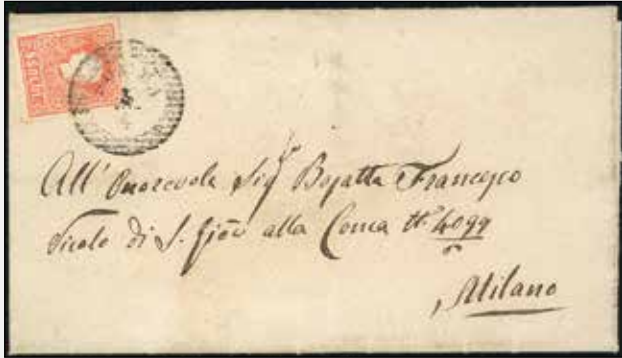 5 SOLDI
All' Onorevole Sigr Bojatta Francesco
Vicolo di S. Giov alla Conca N° 4099
Milano